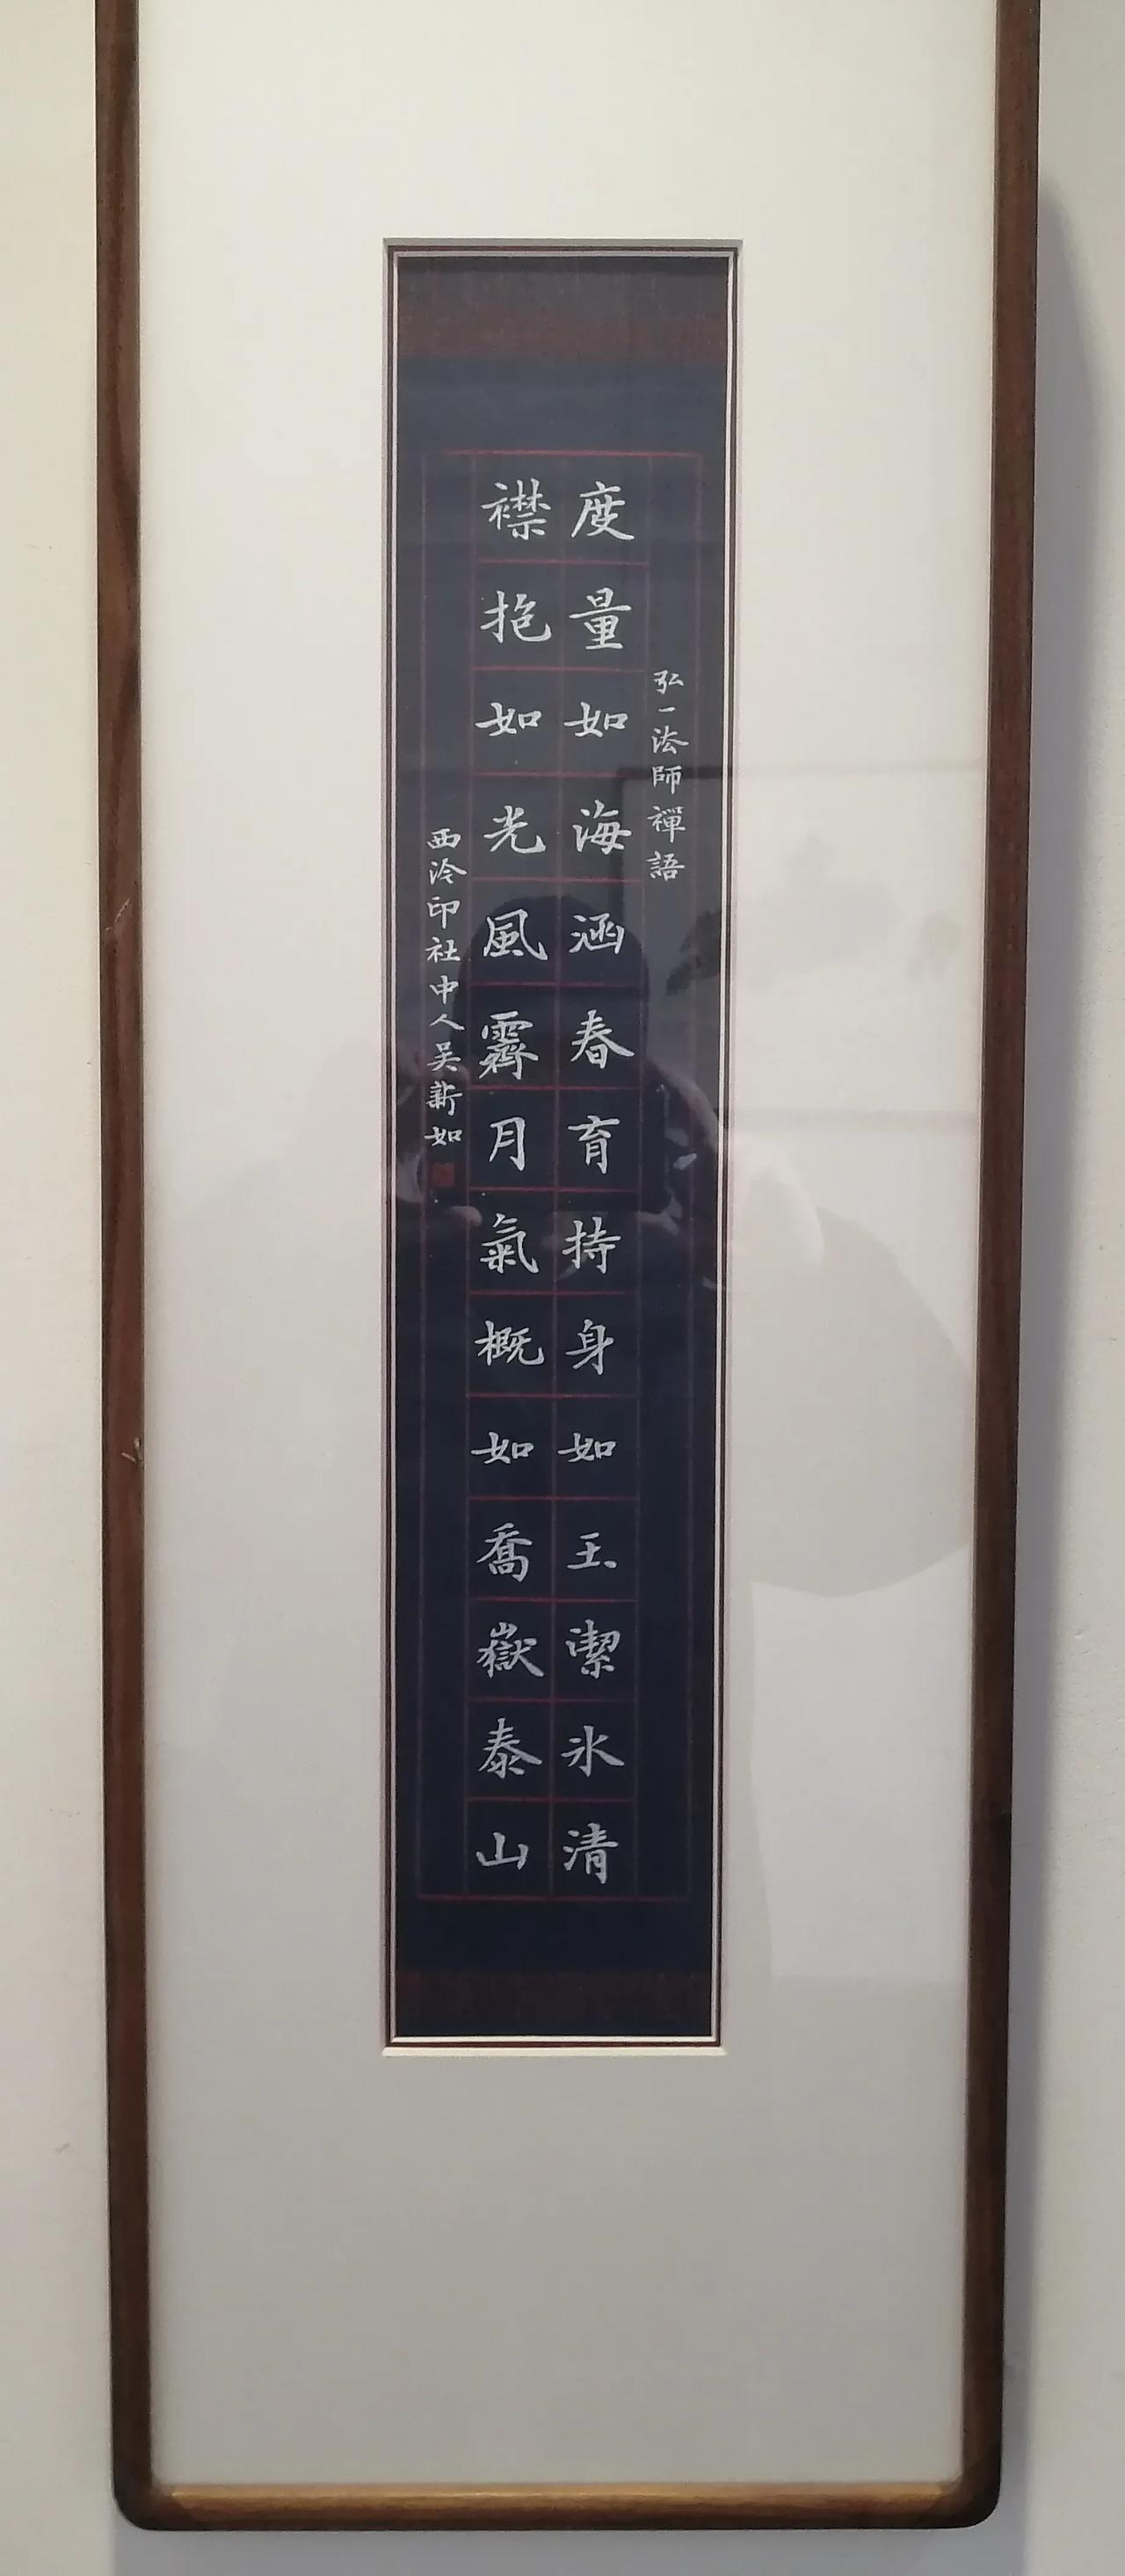 弘一法師禪語
度量如海涵春育持身如玉潔冰清
襟抱如光風霽月氣概如喬嶽泰山
西泠印社中人吴新如